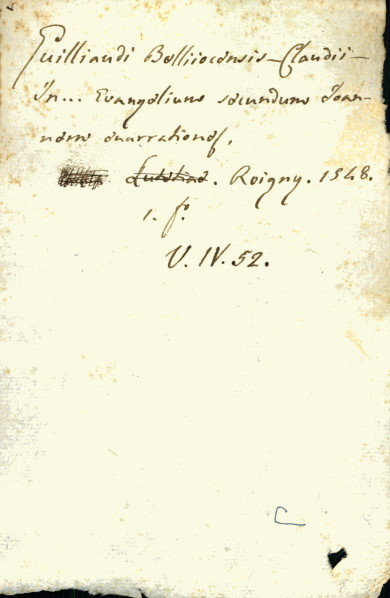 Guilliaudi Bellijocensis - Claudii -
In... Evangelium secundum Joan-
nem enarrationes.
Lutetiae. Roigny. 1548.
1. fº.
V. IV. 52.
C